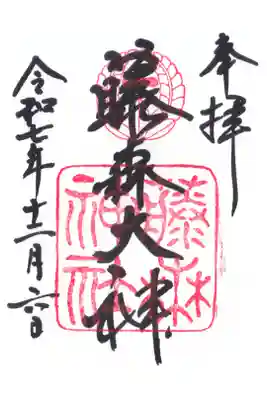 奉拝
藤森大神
藤森
神社
令和七年十二月六日